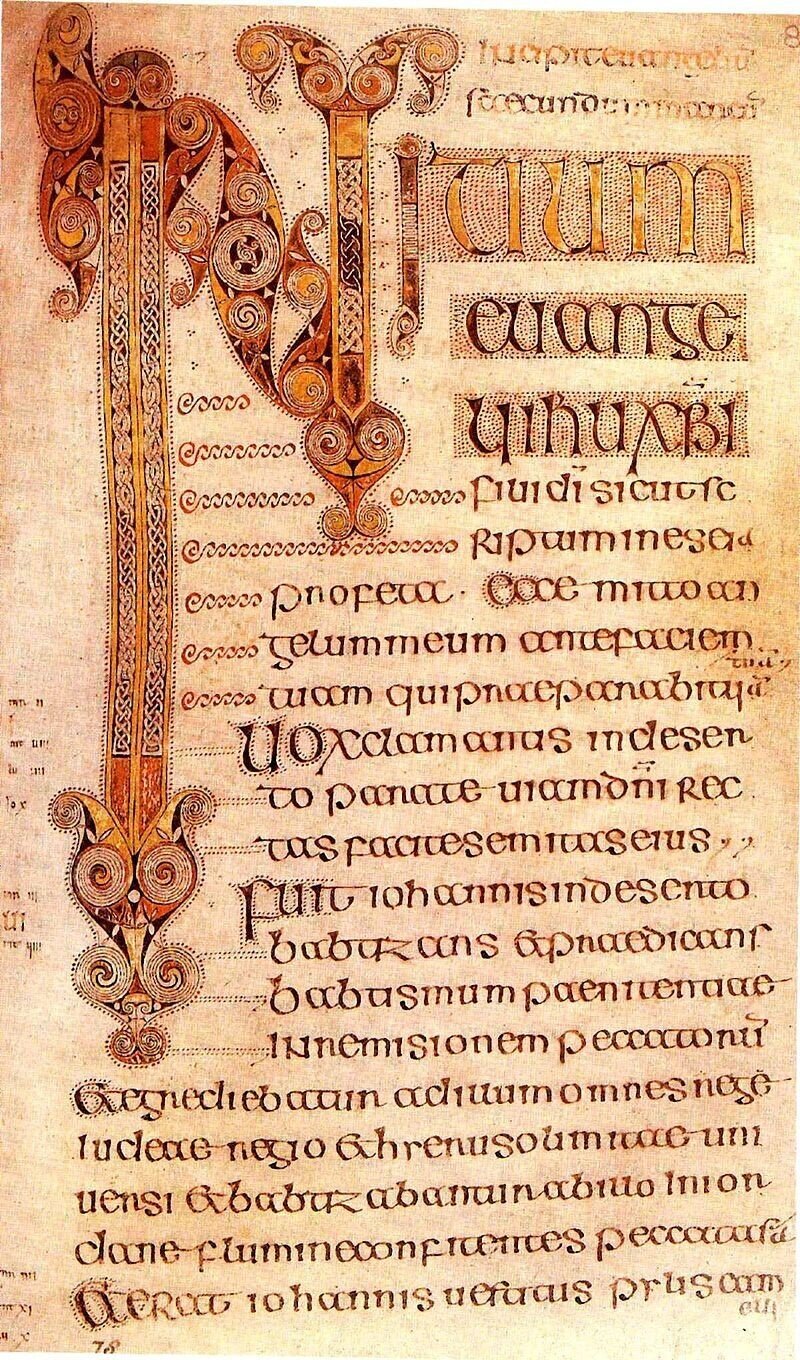 Incipit euangelii
secundum
INITIUM
euange
lii ihu xpi
fili di sicut sc
riptum in esei
profeta · Ecce mitto an
gelum meum ante faciem
tuam qui praeparabit
Uox clamantis in deser
to parate uiam dni rec
tas facite semitas eius
Fuit iohannis in deserto
babtizans et praedicans
babtismum paenitentiae
in remisionem peccatorū
Et egrediebatur ad illum omnes rege
iudeae regio et hyerusolimitae uni
uersi et babtizabantur ab illo in ior
dane flumine confitentes peccata sa
Et erat iohannis uestitus pylis cam
78